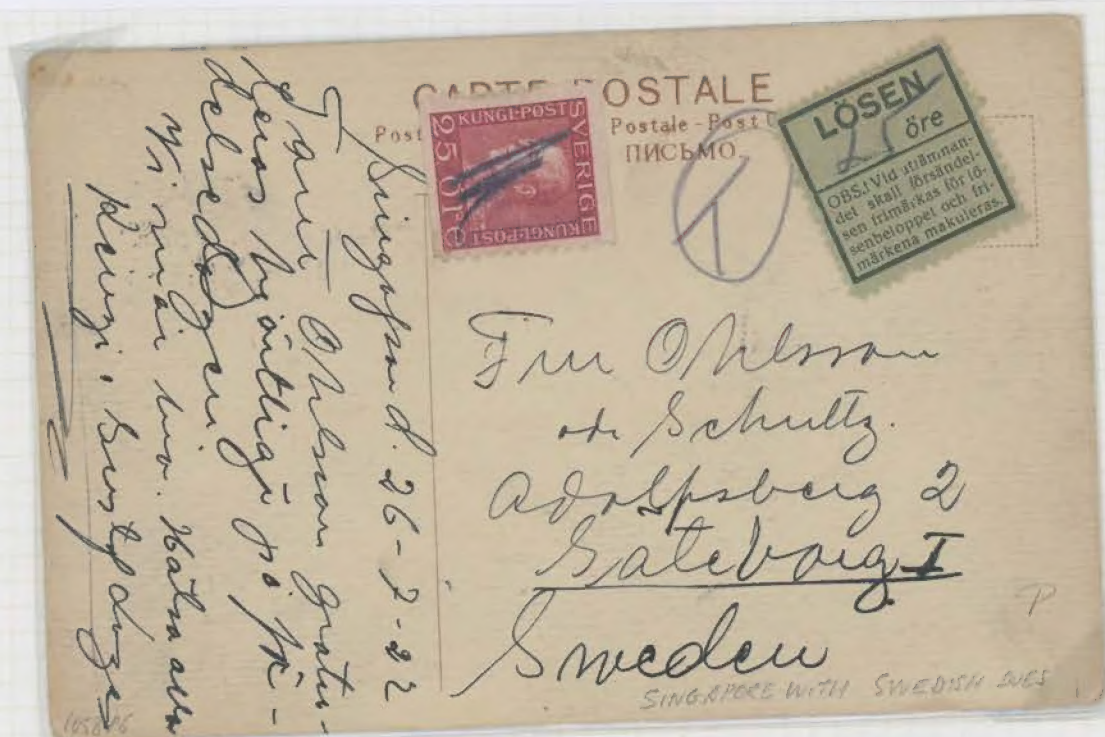 CARTE POSTALE
Post Postale - Post
ПИСЬМО
SVERIGE
KUNGL·POST
25 ÖRE
KUNGL·POST
T
LÖSEN
25 öre
OBS.! Vid utlämnan-
det skall försändel-
sen frimärkas för lö-
senbeloppet och fri-
märkena makuleras.
Singapore d. 26-7-22
Ohlson gratu-
leras hjärtligt på fö-
delsedagen
Vi mår bra. Hälsa alla
Fru Ohlsson
Schultz.
Adolfsberg 2
Göteborg I
Sweden
P
SINGAPORE WITH SWEDISH DUES